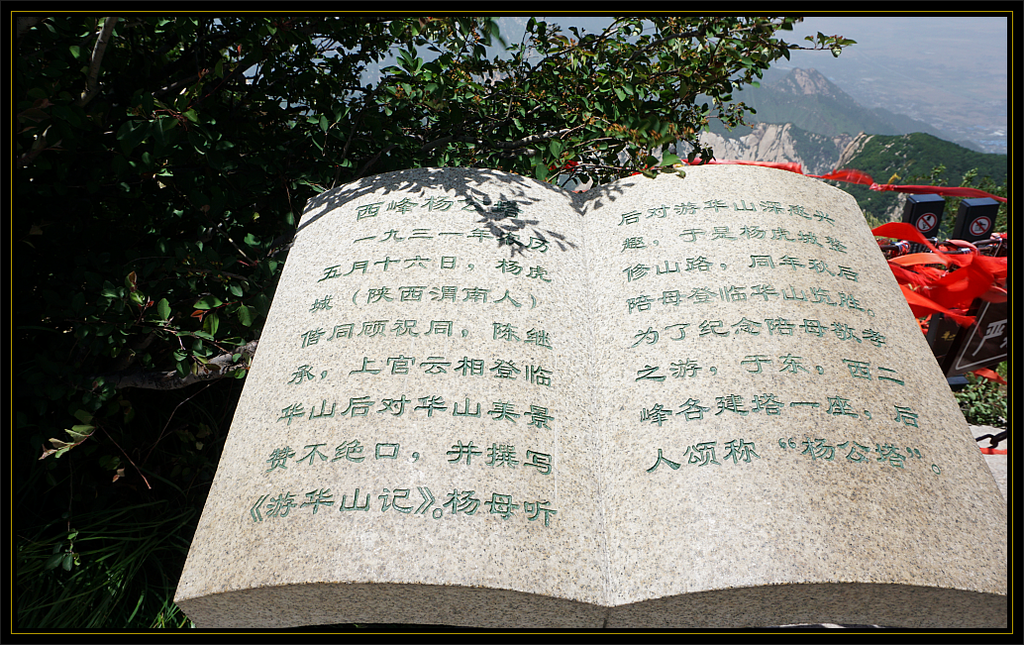 西峰杨公塔
一九三一年农历
五月十六日，杨虎
城（陕西渭南人）
偕同顾祝同，陈继
承，上官云相登临
华山后对华山美景
赞不绝口，并撰写
《游华山记》。杨母听
后对游华山深感兴
趣，于是杨虎城整
修山路，同年秋后
陪母登临华山览胜。
为了纪念陪母敬孝
之游，于东，西二
峰各建塔一座，后
人颂称“杨公塔”。
严